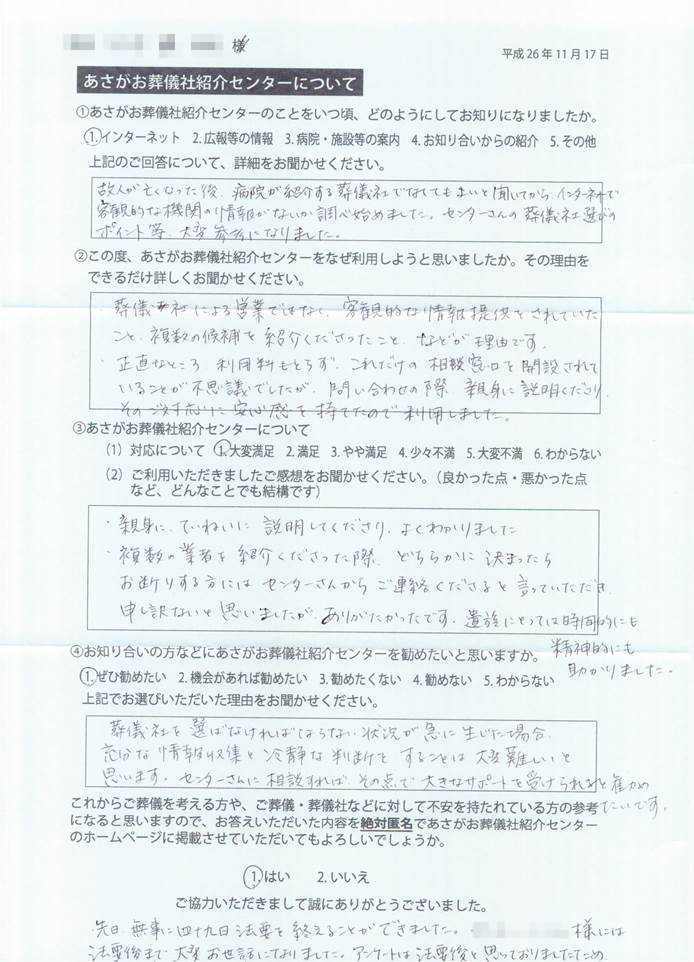 様
平成26年11月17日
あさがお葬儀社紹介センターについて
①あさがお葬儀社紹介センターのことをいつ頃、どのようにしてお知りになりましたか。
1.インターネット 2.広報等の情報 3.病院・施設等の案内 4.お知り合いからの紹介 5.その他
上記のご回答について、詳細をお聞かせください。
故人が亡くなった後、病院が紹介する葬儀社でなくてもよいと聞いてから、インターネットで
客観的な機関の情報がないか調べ始めました。センターさんの葬儀社選びの
ポイント等、大変参考になりました。
②この度、あさがお葬儀社紹介センターをなぜ利用しようと思いましたか。その理由を
できるだけ詳しくお聞かせください。
・葬儀社による営業ではなく、客観的な情報提供をされていた
こと、複数の候補を紹介くださったこと、などが理由です。
・正直なところ、利用料もとらず、これだけの相談窓口を開設されて
いることが不思議でしたが、問い合わせの際、親身に説明くださり、
そのご対応に安心感を持てたので利用しました。
③あさがお葬儀社紹介センターについて
（1）対応について 1.大変満足 2.満足 3.やや満足 4.少々不満 5.大変不満 6.わからない
（2）ご利用いただきましたご感想をお聞かせください。（良かった点・悪かった点
など、どんなことでも結構です）
・親身に、ていねいに説明してくださり、よくわかりました
・複数の業者を紹介くださった際、どちらかに決まったら
お断りする方にはセンターさんからご連絡くださると言っていただき、
申し訳ないと思いましたが、ありがたかったです。遺族にとっては時間的にも
精神的にも
助かりました。
④お知り合いの方などにあさがお葬儀社紹介センターを勧めたいと思いますか。
1.ぜひ勧めたい 2.機会があれば勧めたい 3.勧めたくない 4.勧めない 5.わからない
上記でお選びいただいた理由をお聞かせください。
葬儀社を選ばなければならない状況が急に生じた場合、
充分な情報収集と冷静な判断をすることは大変難しいと
思います。センターさんに相談すれば、その点で大きなサポートを受けられると
たいです。
これからご葬儀を考える方や、ご葬儀・葬儀社などに対して不安を持たれている方の参考
になると思いますので、お答えいただいた内容を絶対匿名であさがお葬儀社紹介センター
のホームページに掲載させていただいてもよろしいでしょうか。
1.はい 2.いいえ
ご協力いただきまして誠にありがとうございました。
先日、無事に四十九日法要を終えることができました。 様には
法要後まで大変お世話になりました。アンケートは法要後と思っておりましたため